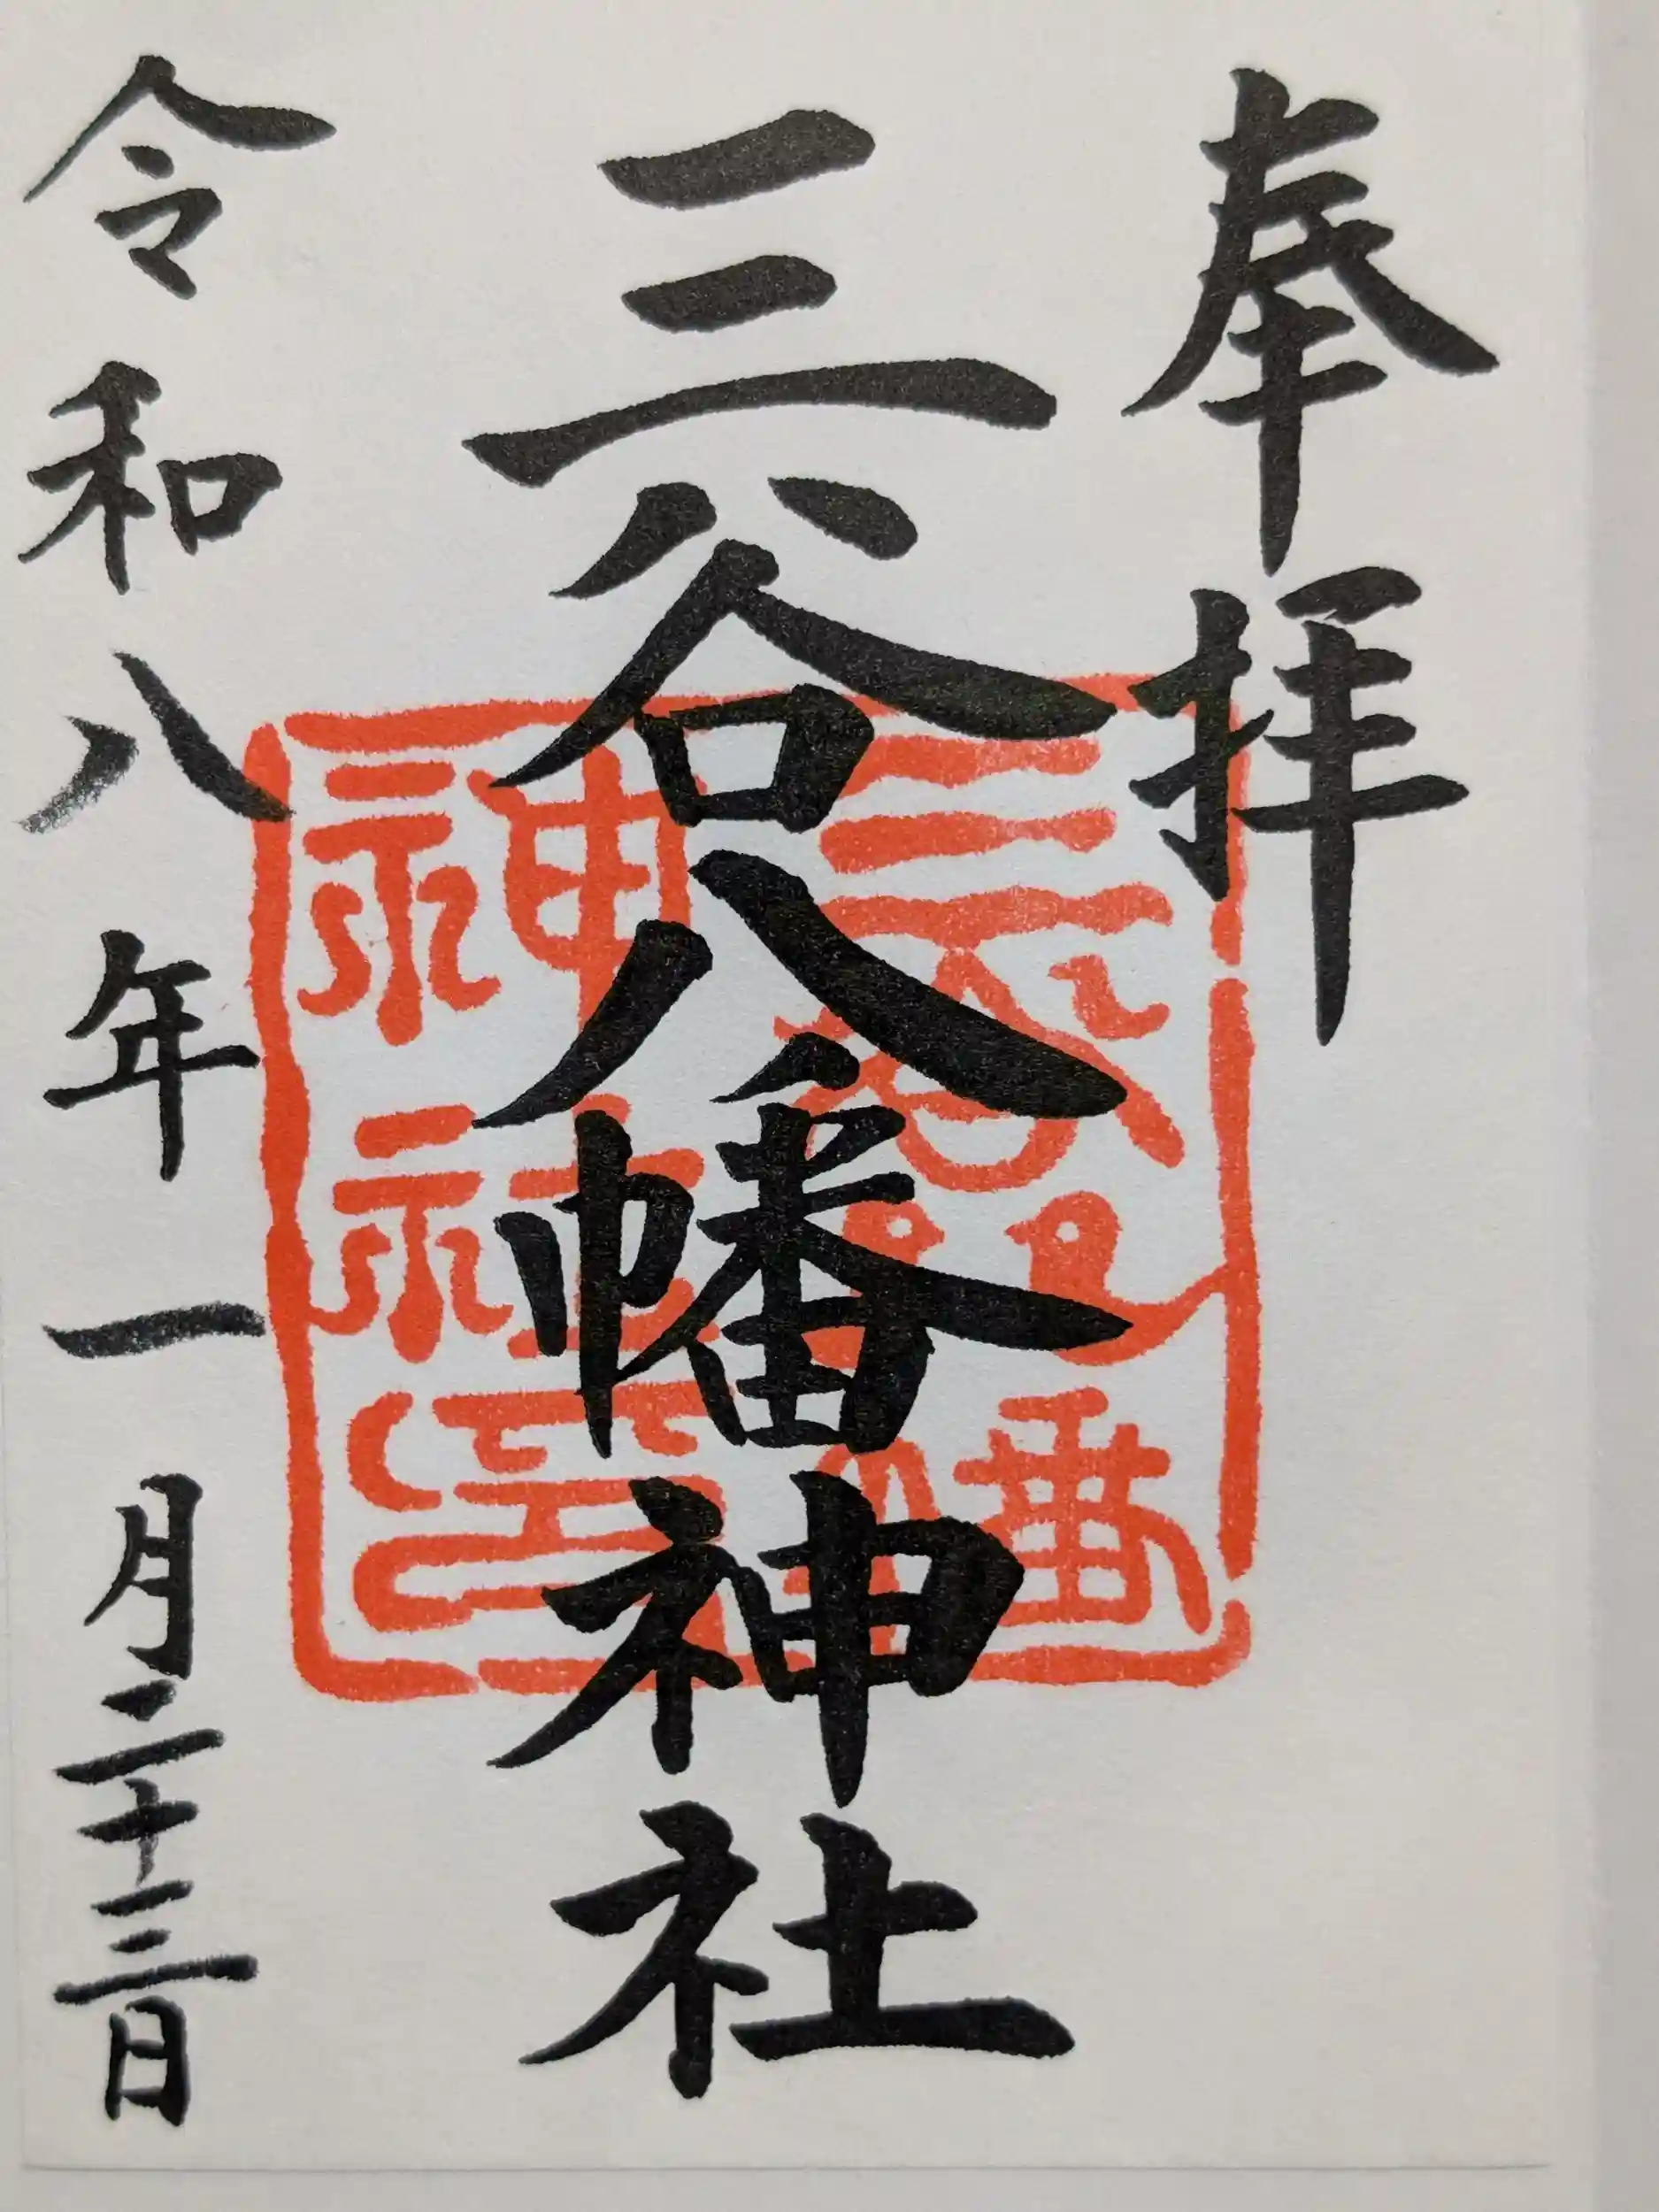 奉拝
三谷八幡神社
三谷八幡
神社印
令和八年一月二十三日